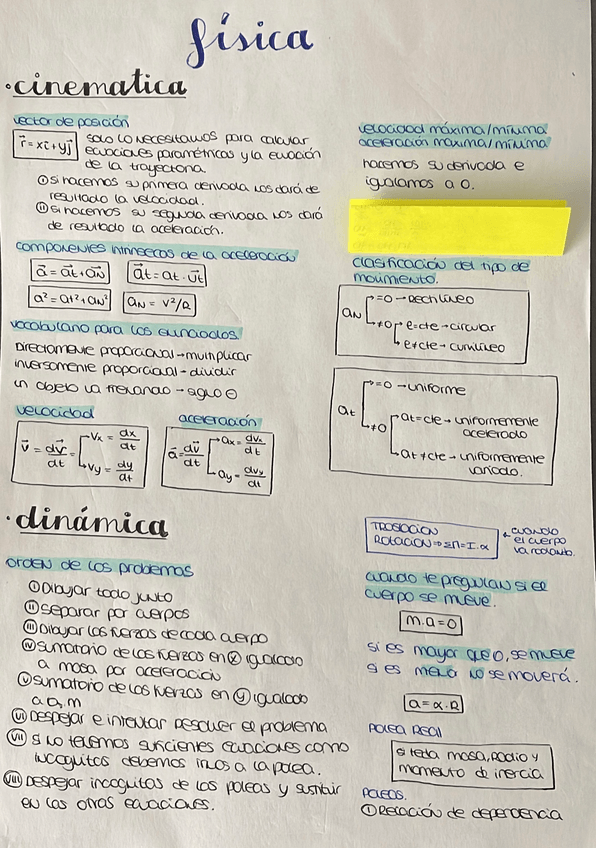 física
·cinematica
vector de posición
r⃗ = xi⃗ + yj⃗
solo lo necesitamos para calcular
ecuaciones paramétricas y la ecuación
de la trayectoria.
Ⓘ si hacemos su primera derivada nos dará de
resultado la velocidad.
Ⓘ Ⓘ si hacemos su segunda derivada nos dará
de resultado la aceleración.
componentes intrínsecos de la aceleración
a⃗ = a⃗t + a⃗N
a⃗t = at · u⃗t
a² = at² + aN²
aN = v²/R
vocabulario para los enunciados
Directamente proporcional → multiplicar
inversamente proporcional → dividir
un objeto va frenando → signo ⊖
velocidad
v⃗ = dr⃗/dt
vx = dx/dt
vy = dy/dt
aceleración
a⃗ = dv⃗/dt
ax = dvx/dt
ay = dvy/dt
velocidad máxima/mínima
aceleración máxima/mínima
hacemos su derivada e
igualamos a 0.
clasificación del tipo de
movimiento.
aN
=0 → Rectilíneo
≠0
=cte → circular
≠cte → curvilíneo
at
=0 → uniforme
≠0
at=cte → uniformemente
acelerado
at≠cte → uniformemente
variado.
·dinámica
orden de los problemas
Ⓘ Dibujar todo junto
ⒾⒾ separar por cuerpos
ⒾⒾⒾ Dibujar las fuerzas de cada cuerpo
ⒾⓋ sumatorio de las fuerzas en ⓧ igualado
a masa por aceleración
Ⓥ sumatorio de las fuerzas en ⓨ igualado
a a, m
ⓋⒾ Despejar e intentar resolver el problema
ⓋⒾⒾ si no tenemos suficientes ecuaciones como
incognitas debemos irnos a la polea.
ⓋⒾⒾⒾ Despejar incognitas de las poleas y sustituir
en las otras ecuaciones.
TRASLACIÓN
ROTACIÓN ⇒ ΣM = I·α
← cuando
el cuerpo
va rodando.
cuando te preguntan si el
cuerpo se mueve.
m·a=0
si es mayor que 0, se mueve
si es menor no se moverá.
a = α·R
POLEA REAL
si tela masa, radio y
momento de inercia
POLEAS.
Ⓘ Relación de dependencia